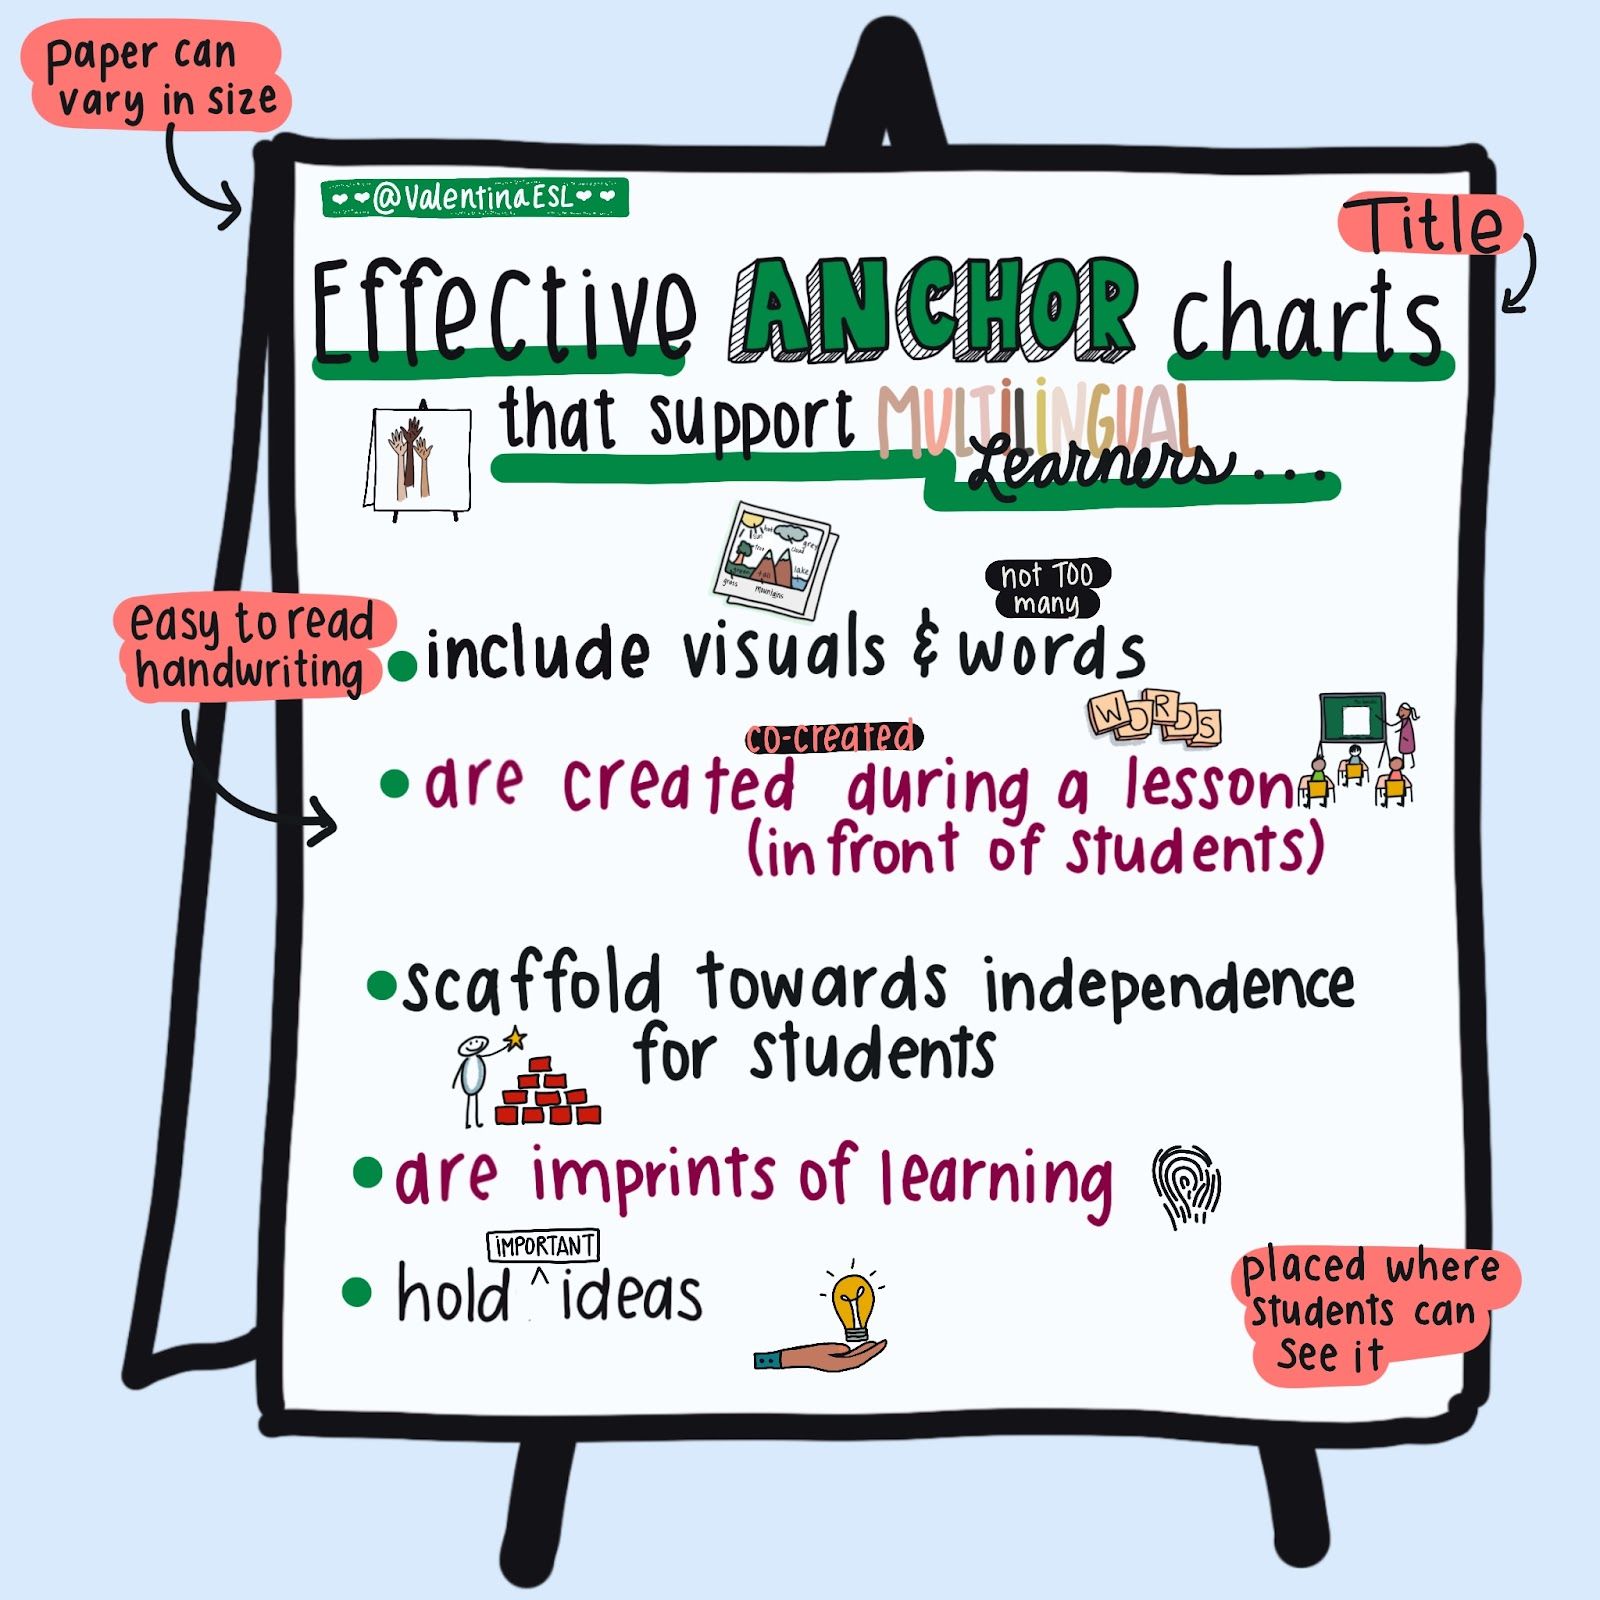 paper can
vary in size
@ValentinaESL
Title
Effective ANCHOR charts
that support MULTILINGUAL
Learners...
sun
hot
cloud
grey
tree
lake
green
tall
grass
mountains
not TOO
many
easy to read
handwriting
include visuals & words
WORDS
co-created
are created during a lesson
(in front of students)
scaffold towards independence
for students
are imprints of learning
IMPORTANT
hold ^ ideas
placed where
students can
see it